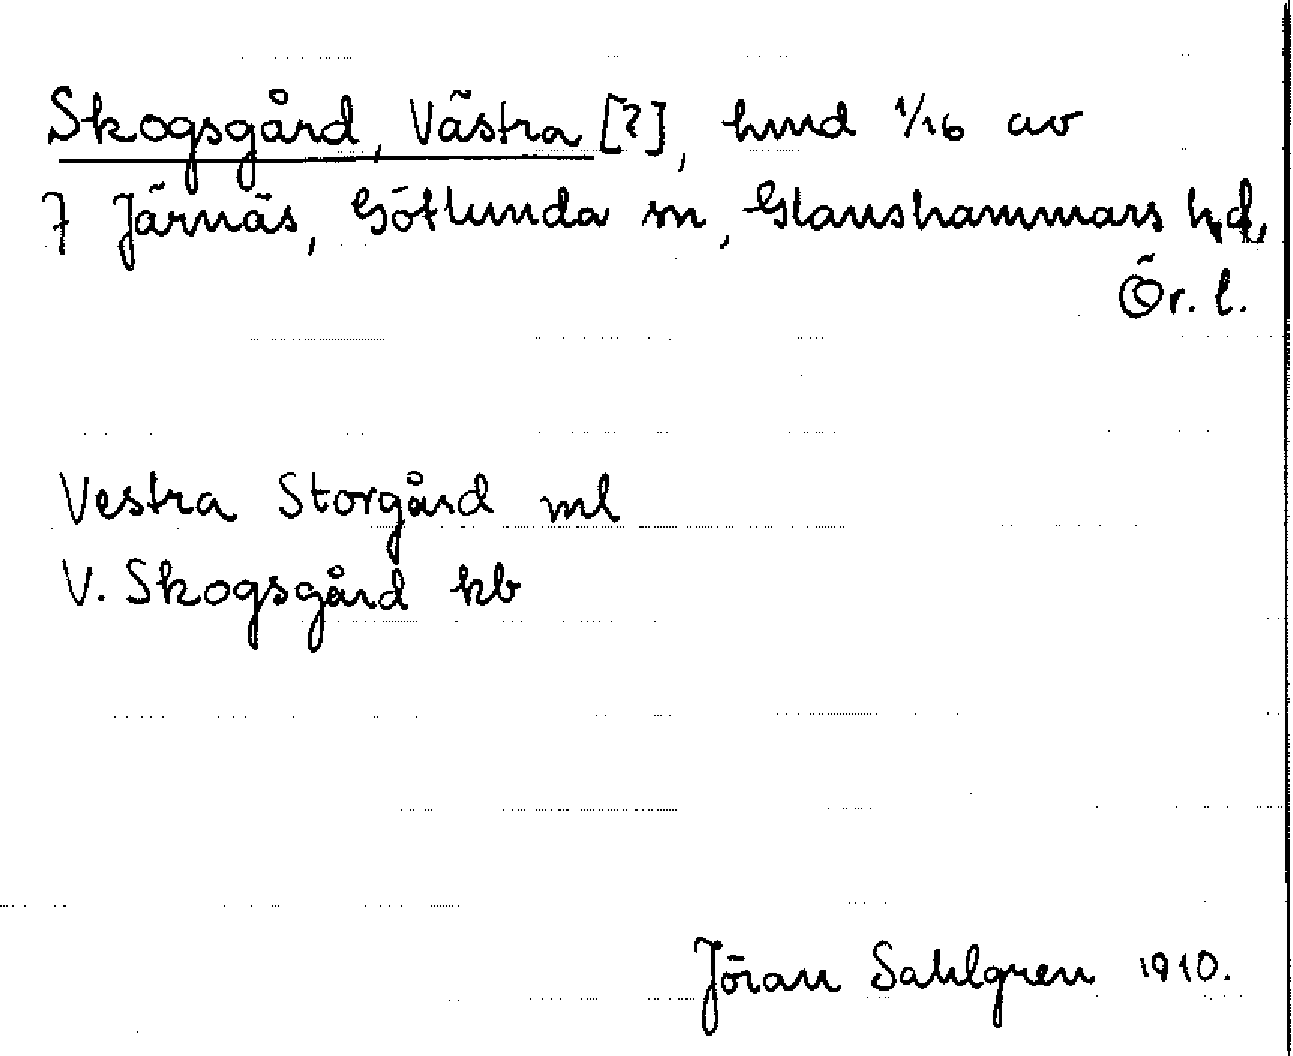 Skogsgård, Västra [?], hmd 1/16 av
7 Järnäs, Götlunda sn, Glanshammars hd,
Ör. l.
Vestra Storgård ml
V. Skogsgård kb
Jöran Sahlgren 1910.